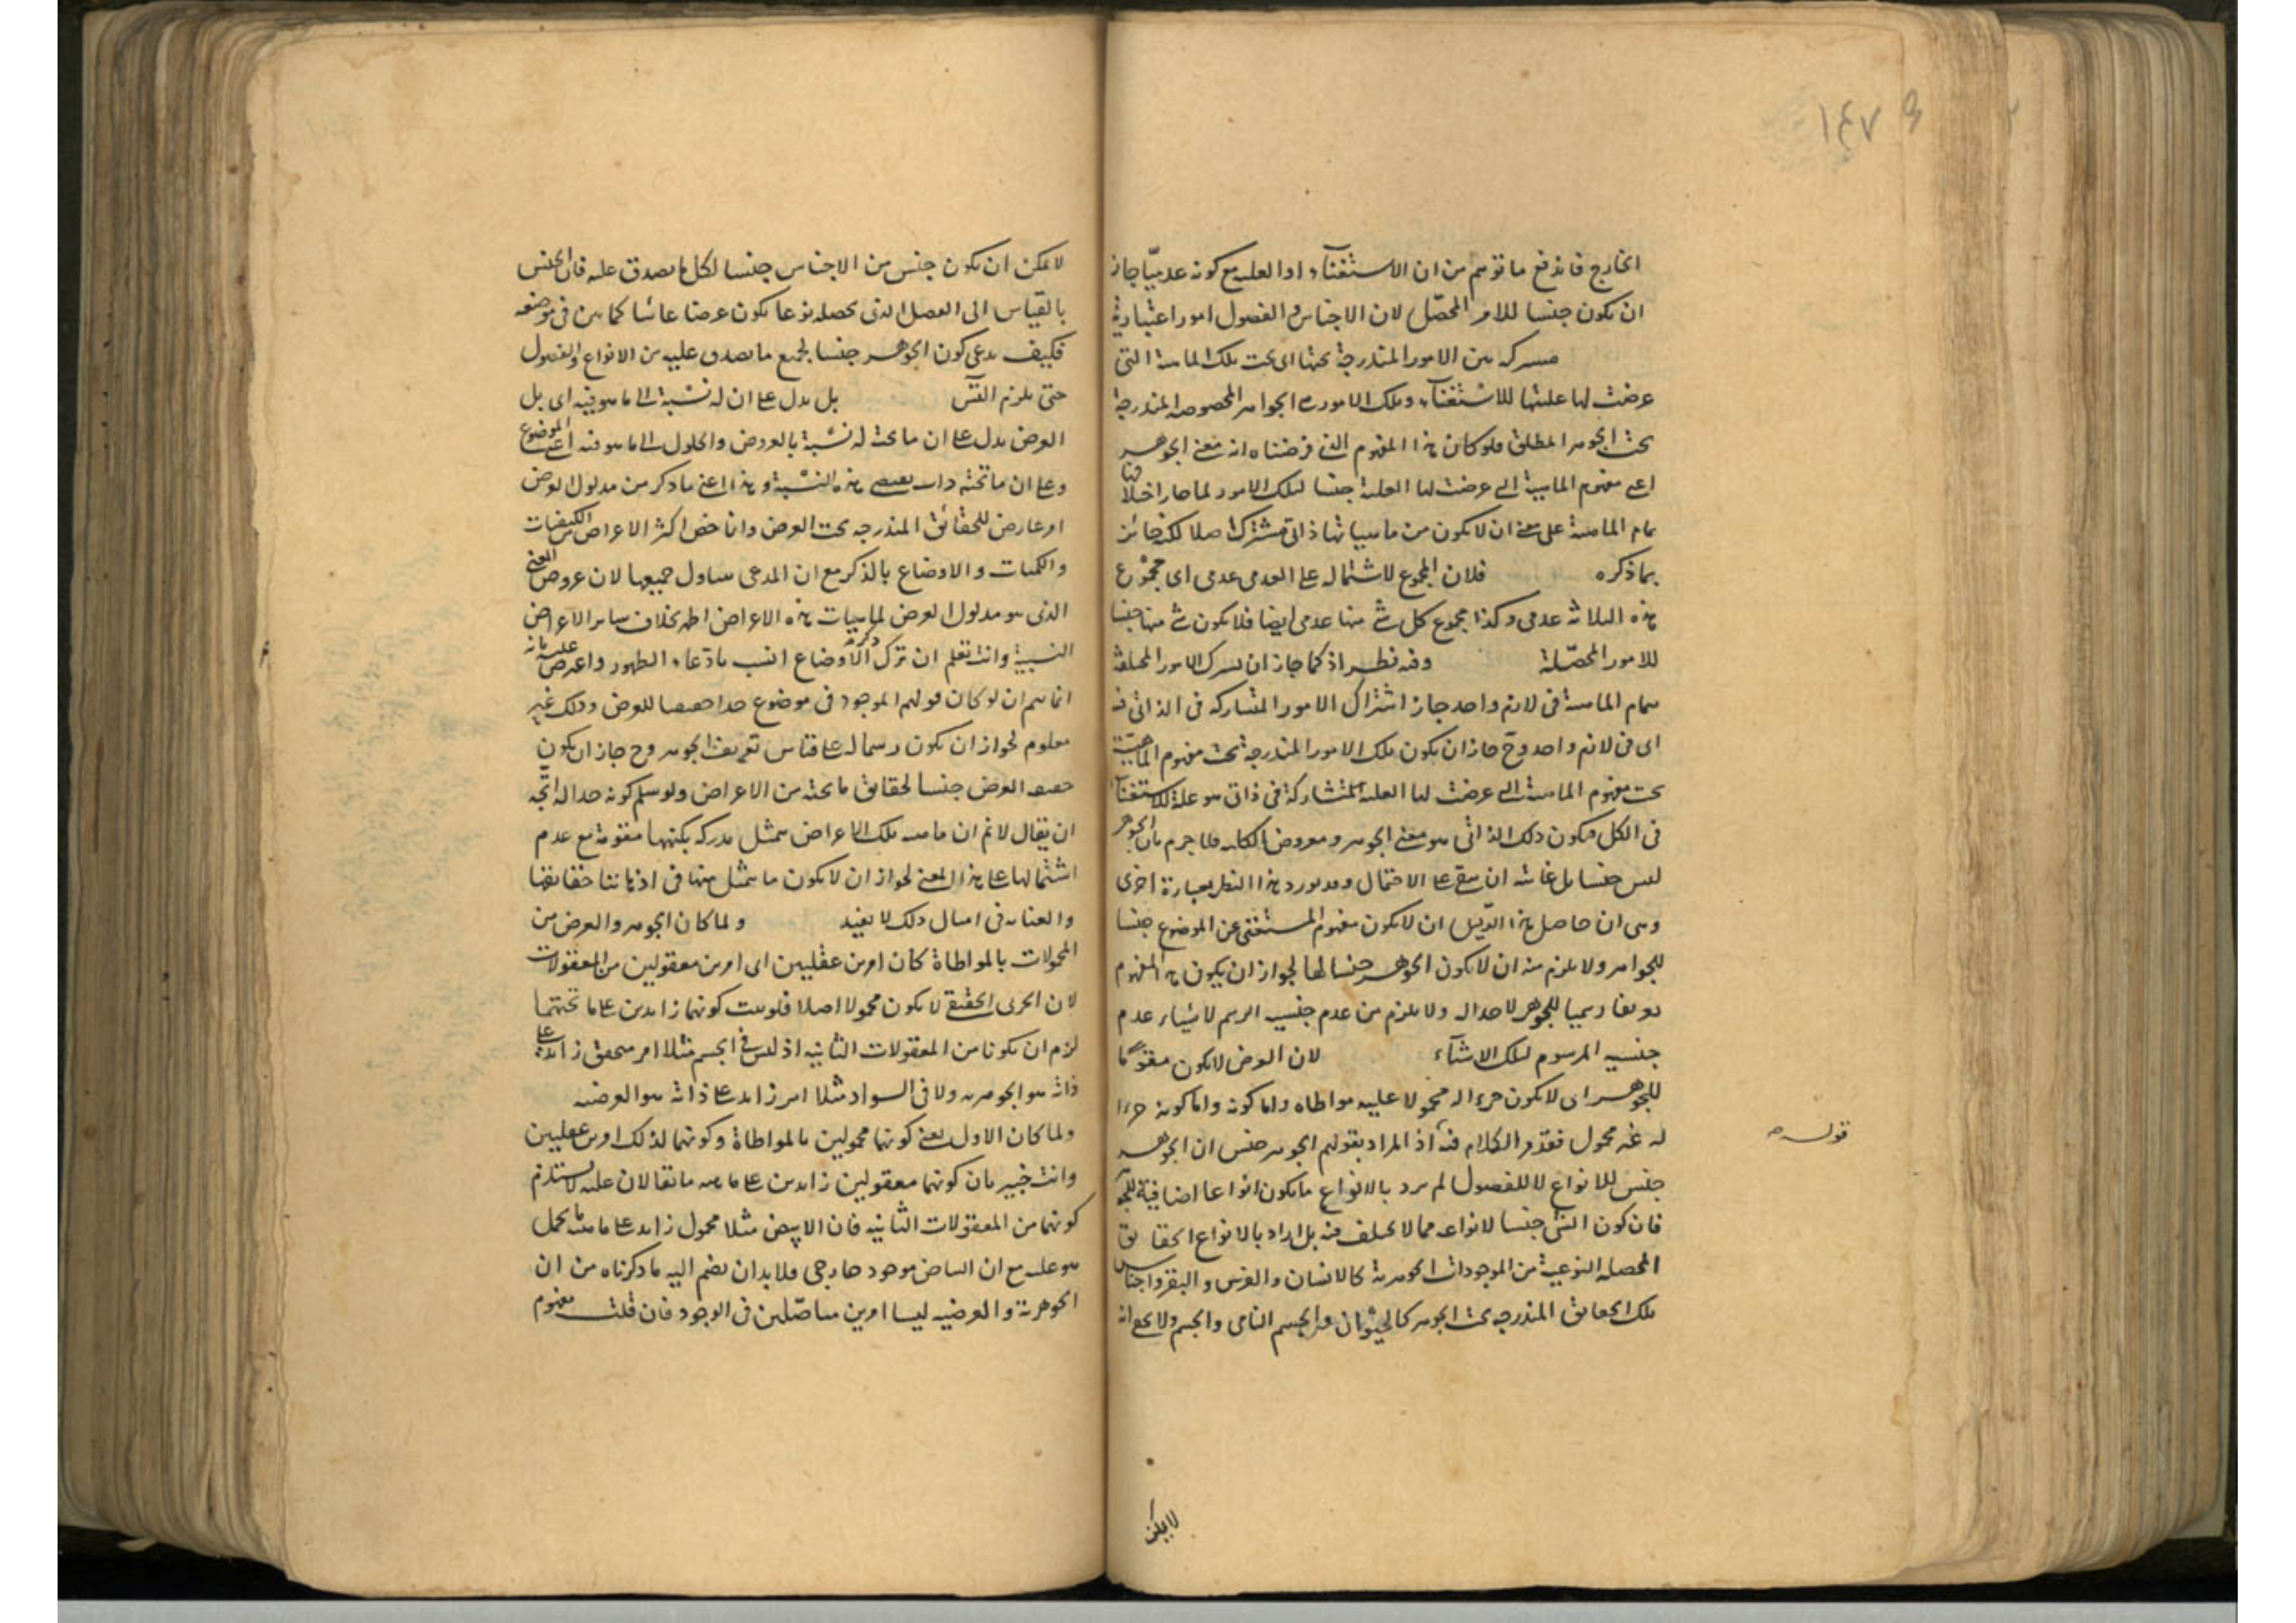 ١٤٧ و
الخارج فاندفع ما توهم من ان الاستغناء او العلية مع كونه عدميّا جاز
ان يكون جنسا للامر المحصّل لان الاجناس و الفصول امور اعتبارية
مشتركة بين الامور المندرجة تحتها اى تحت تلك الماهية التى
عرضت لها عليتها للاستغناء وتلك الامور هى الجواهر المخصوصة المندرجة
تحت الجوهر المطلق فلو كان هذا المفهوم الذى فرضناه انه معنى الجوهر
اعنى مفهوم الماهية التى عرضت لها العلية جنسا لتلك الامور لما جاز اختلافها
بتمام الماهية على معنى ان لا يكون من ماهياتها ذاتى مشترك اصلا لكنه جائز
بما ذكره فلان المجموع لاشتماله على العدمى عدمى اى مجموع
هذه الثلاثة عدمى وكذا مجموع كل شئ منها عدمى ايضا فلا يكون شئ منها جنسا
للامور المحصّلة وفيه نظر اذ كما جاز ان يشترك الامور المختلفة
بتمام الماهية فى لازم واحد جاز اشتراك الامور المتشاركة فى الذاتى فيه
اى فى لازم واحد وح جاز ان يكون تلك الامور المندرجة تحت مفهوم الماهية
تحت مفهوم الماهية التى عرضت لها العلية المتشاركة فى ذاتى هو علة للاستغناء
فى الكل فيكون ذلك الذاتى هو معنى الجوهر و معروض فلا جزم بان الجوهر
ليس جنسا بل غايته ان يبقى على الاحتمال وقد يورد هذا النظر بعبارة اخرى
وهى ان حاصل هذا الدليل ان لا يكون مفهوم المستغنى عن الموضوع جنسا
للجواهر ولا يلزم منه ان لا يكون الجوهر جنسا لها لجواز ان يكون هذا المفهوم
تعريفا رسميا للجوهر لا حدا له ولا يلزم من عدم جنسية الرسم لاشياء عدم
جنسية المرسوم لتلك الاشياء لان العرض لا يكون مقوّما
للجوهر اى لا يكون جزءا له محمولا عليه مواطاة واما كونه واما كونه جزءا
له غير محمول فقد مر الكلام فيه اذ المراد بقولهم الجوهر جنس ان الجوهر
قوله
جنس للانواع لا للفصول لم يرد بالانواع ما يكون انواعا اضافية للجوهر
فان كون الشئ جنسا لانواعه مما لا يختلف فيه بل اراد بالانواع الحقايق
المحصلة النوعية من الموجودات الجوهرية كالانسان والفرس والبقر واجناس
تلك الحقايق المندرجة تحت الجوهر كالحيوان والجسم النامى والجسم ولا يخفى انه
لا يمكن
لا يمكن ان يكون جنس من الاجناس جنسا لكل ما يصدق عليه فان الجنس
بالقياس الى الفصل الذى يحصله نوعا يكون عرضا عاما كما بين فى موضعه
فكيف يدعى كون الجوهر جنسا لجميع ما يصدق عليه من الانواع والفصول
حتى يلزم التس بل يدل على ان له نسبة الى ما هو فيه اى بل
العرض يدل على ان ما تحته له نسبة بالعروض والحلول الى ما هو فيه اعنى الموضوع
وعلى ان ما تحته ذات يقتضى هذه النسبة وهذا اعنى ما ذكر من مدلول العرض
امر عارض للحقائق المندرجة تحت العرض وانما خص اكثر الاعراض الكيفيات
والكميات والاوضاع بالذكر مع ان المدعى يتناول جميعها لان عروض المعنى
الذى هو مدلول العرض لماهيات هذه الاعراض اظهر بخلاف ساير الاعراض
النسبية وانت تعلم ان ترك ذكره الاوضاع انسب بادّعاء الظهور واعترض عليه بانه
انما يتم ان لو كان قولهم الموجود فى موضوع حدا حقيقيا للعرض وذلك غير
معلوم لجواز ان يكون رسما له على قياس تعريف الجوهر وح جاز ان يكون
حقيقة العرض جنسا لحقايق ما تحته من الاعراض ولو سلم كونه حدا له اتّجه
ان يقال لا نم ان ماهية تلك الاعراض يتمثل مدركة بكنهها مقومة مع عدم
اشتمالها على هذا المعنى لجواز ان لا يكون ما يتمثل منها فى اذهاننا حقايقها
والعناية فى امثال ذلك لا يفيد ولما كان الجوهر والعرض من
المحمولات بالمواطاة كان امرين عقليين اى امرين معقولين من المعقولات
لان الجزئى الحقيقى لا يكون محمولا اصلا فلو ثبت كونهما زايدين على ما تحتهما
لزم ان يكونا من المعقولات الثانية اذ ليس فى الجسم مثلا امر متحقق زايد على
ذاته هو الجوهرية ولا فى السواد مثلا امر زايد على ذاته هو العرضية
ولما كان الاول يعنى كونهما محمولين بالمواطاة وكونهما لذلك امرين عقليين
وانت خبير بان كونهما معقولين زايدين على ماهية ما يقالان عليه لا يستلزم
كونهما من المعقولات الثانية فان الابيض مثلا محمول زايد على ماهية ما يحمل
هو عليه مع ان البياض موجود خارجى فلا بد ان يضم اليه ما ذكرناه من ان
الجوهرية والعرضية ليسا امرين متاصّلين فى الوجود فان قلت مفهوم